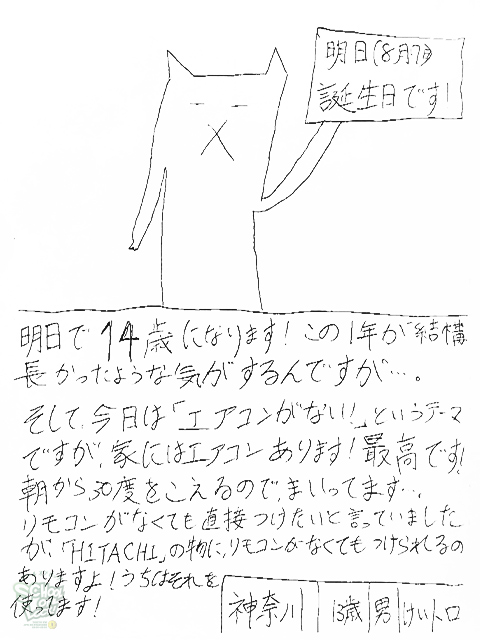 明日(8月7日)
誕生日です!
明日で14歳になります!この1年が結構
長かったような気がするんですが…。
そして、今日は「エアコンがない!」というテーマ
ですが、家にはエアコンあります!最高です!
朝から30度をこえるので、まいってます…。
リモコンがなくても直接つけたいと言っていました
が、「HITACHI」の物に、リモコンがなくてもつけられるの
ありますよ!うちはそれを
使ってます!
神奈川 13歳 男 けいトロ